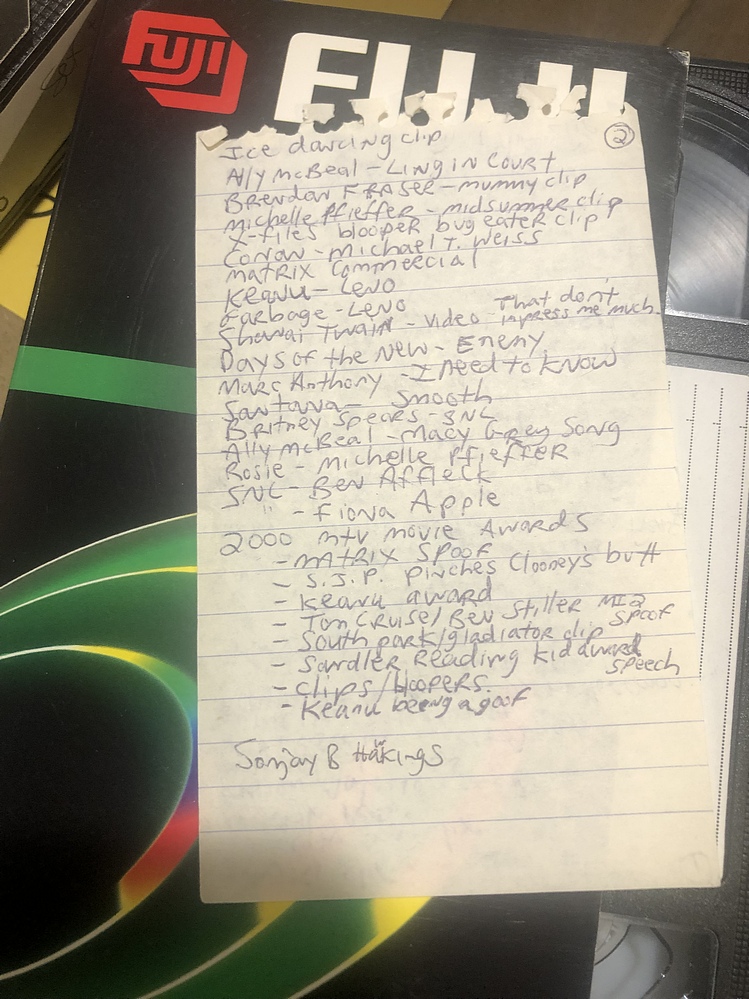 FUJI
FUJI
2
Ice dancing clip
Ally McBeal - Ling in Court
Brendan Fraser - mummy clip
Michelle Pfieffer - midsummer clip
X-files blooper bug eater clip
Conan - Michael T. Weiss
Matrix Commercial
Keanu - Leno
Garbage - Leno
Shanai Twain - video That don't
inpress me much.
Days of the New - Enemy
Marc Anthony - I need to know
Santana - Smooth
Britney Spears - SNL
Ally McBeal - Macy Grey Song
Rosie - Michelle Pfieffer
SNL - Ben Affleck
" - Fiona Apple
2000 mtv movie Awards
- MATRIX SPOOF
- S.J.P. pinches Clooney's butt
- Keanu award
- Tom Cruise/Ben Stiller MI2
Spoof
- South park/gladiator clip
- Sandler Reading kid award
speech
- Clips/bloopers.
- Keanu being a goof